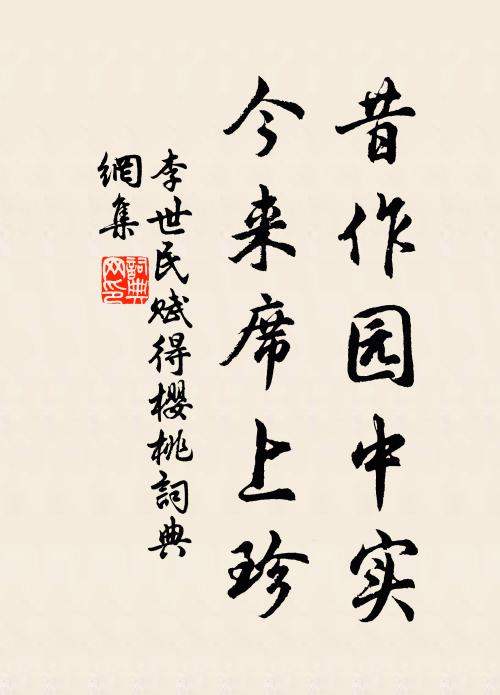 昔作园中实
今来席上珍
李世民赋得櫻桃詞典
網集
詞典
网印